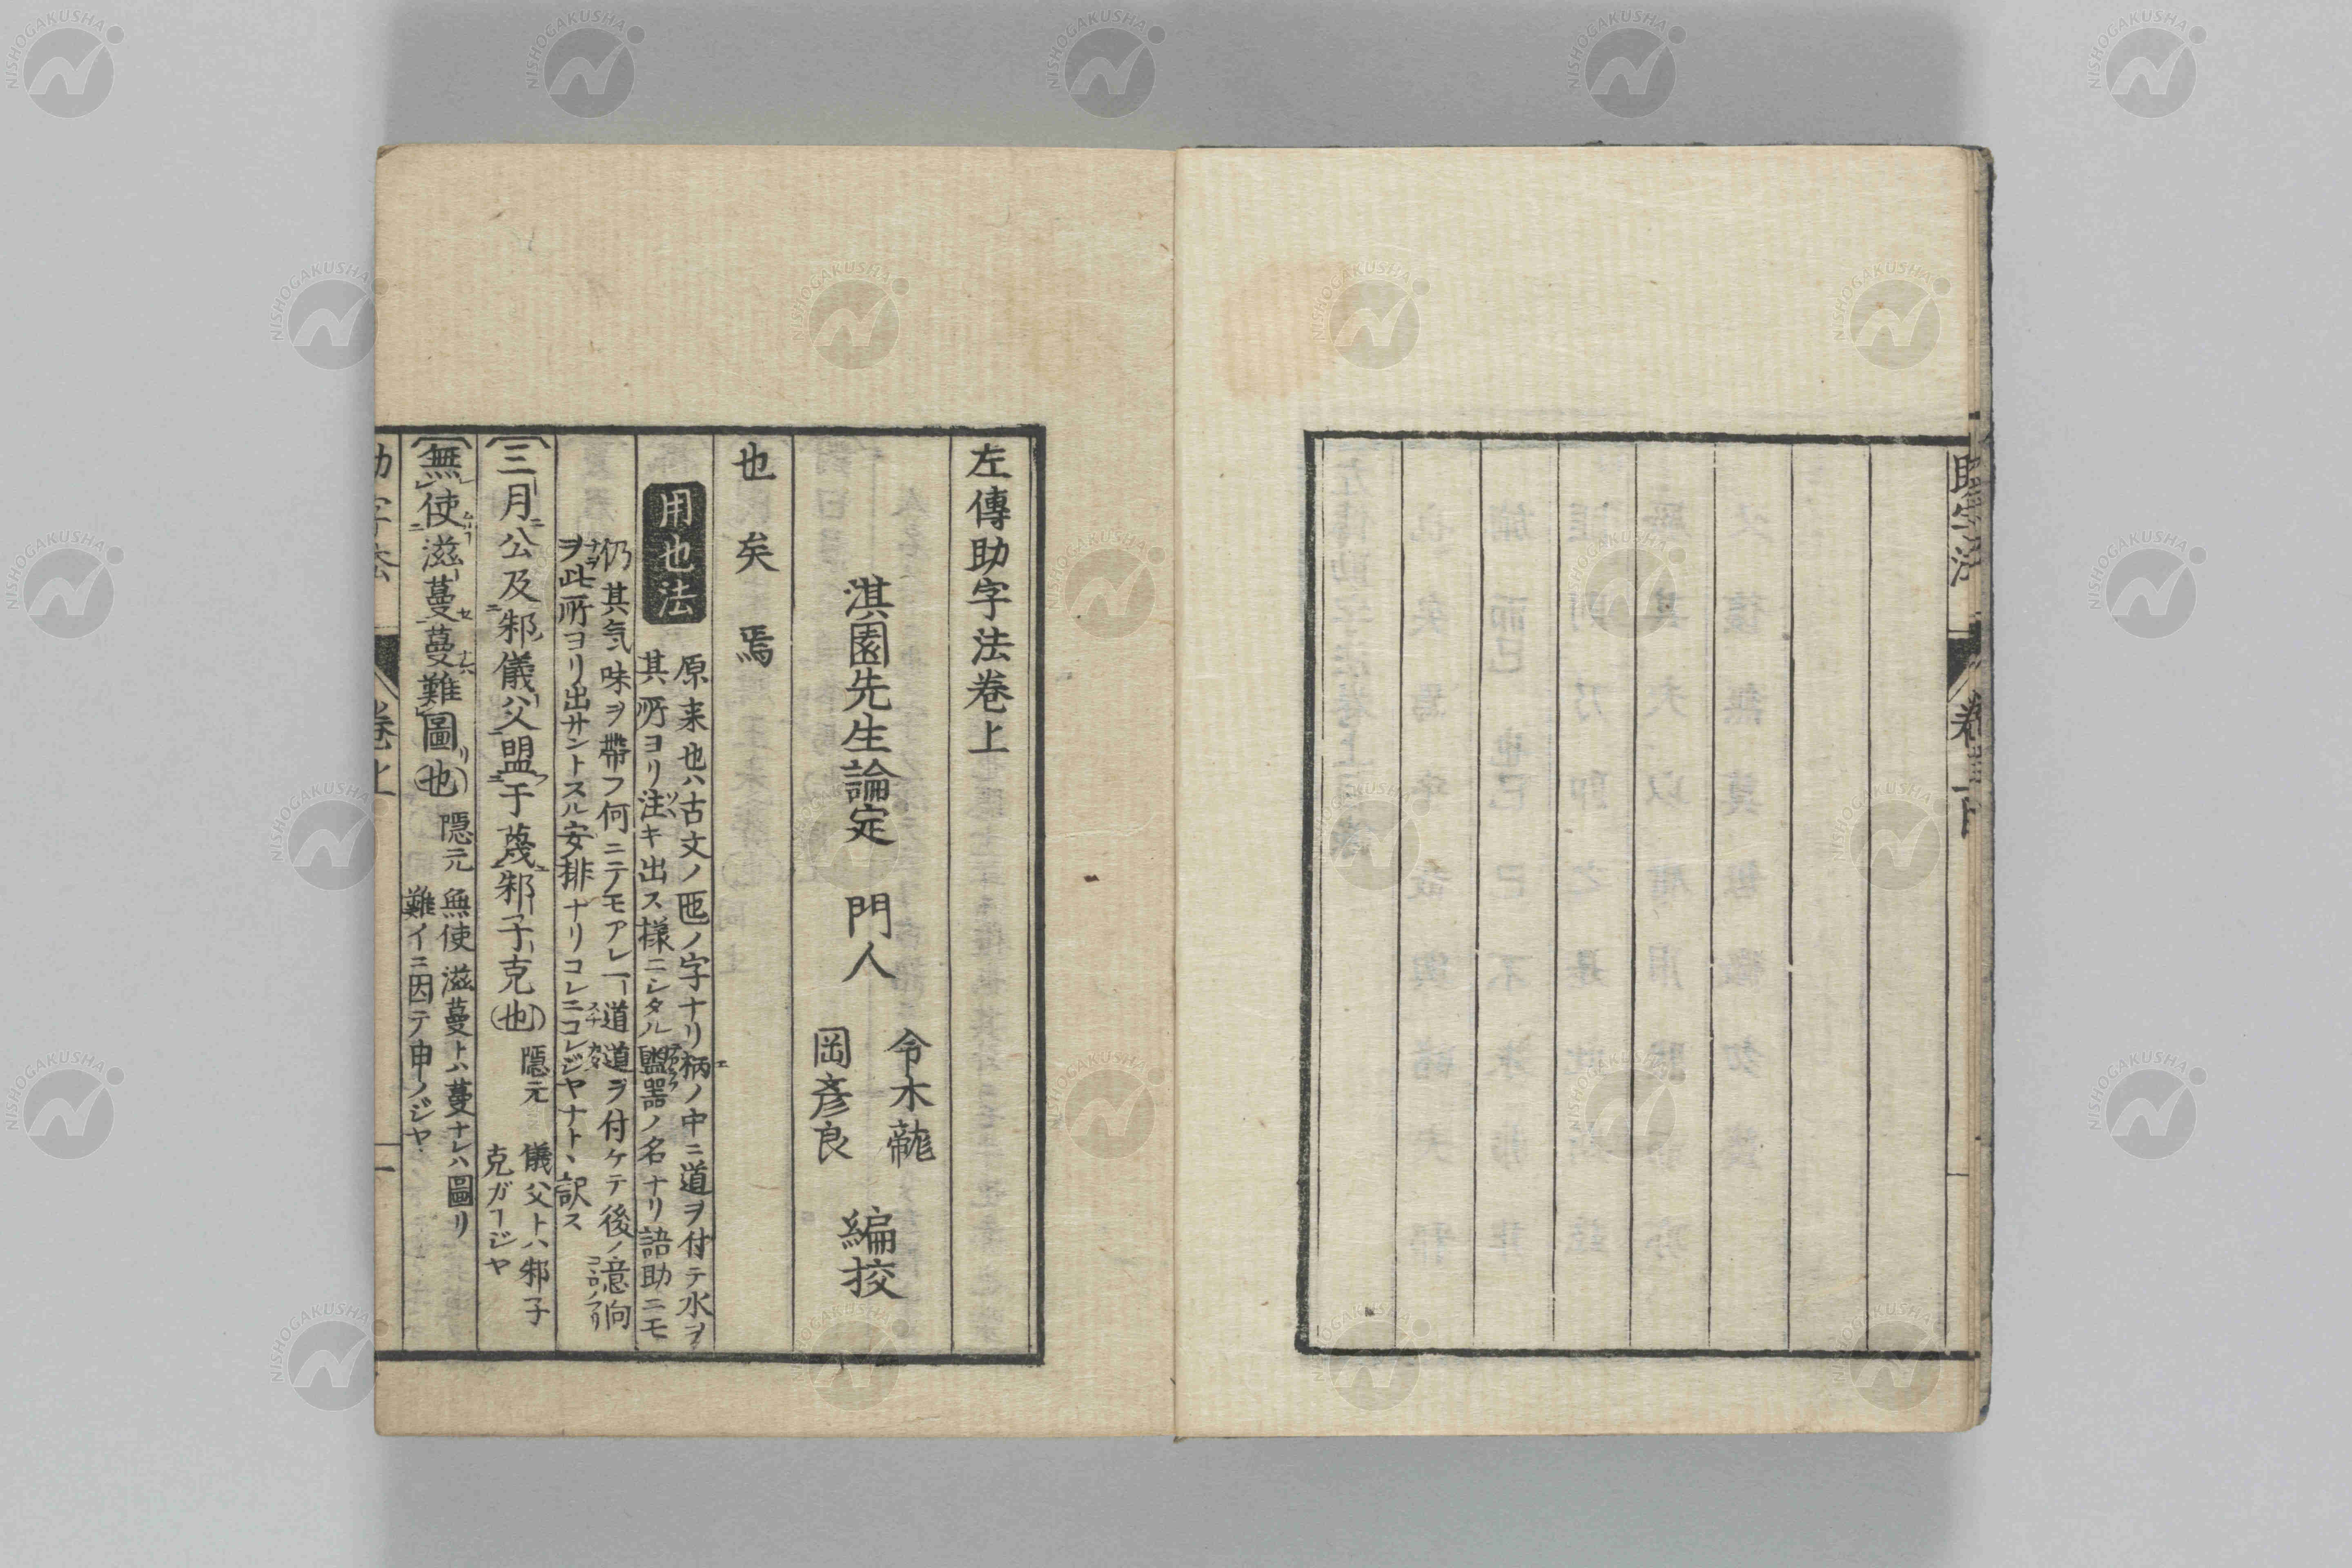 左傳助字法巻上
淇園先生論定 門人 令木龍 岡彥良 編挍
也 矣 焉
用也法
原来也ハ古文ノ匜ノ字ナリ柄ノ中ニ道ヲ付テ水ヲ
其所ヨリ注キ出ス様ニシタル盥器ノ名ナリ語助ニモ
仍其気味ヲ帶フ何ニテモアレ一道道ヲ付ケテ後ノ意向
ヲ此所ヨリ出サントスル安排ナリコレニコレジヤナト、訳ス
三月公及邾儀父盟于蔑邾子克也 隠元 儀父トハ邾子
克ガージヤ
無使滋蔓蔓難圖也 隠元 無使滋蔓トハ蔓ナレハ圖リ
難イニ因テ申ノジヤ
助字法 巻上 一
NISHOGAKUSHA